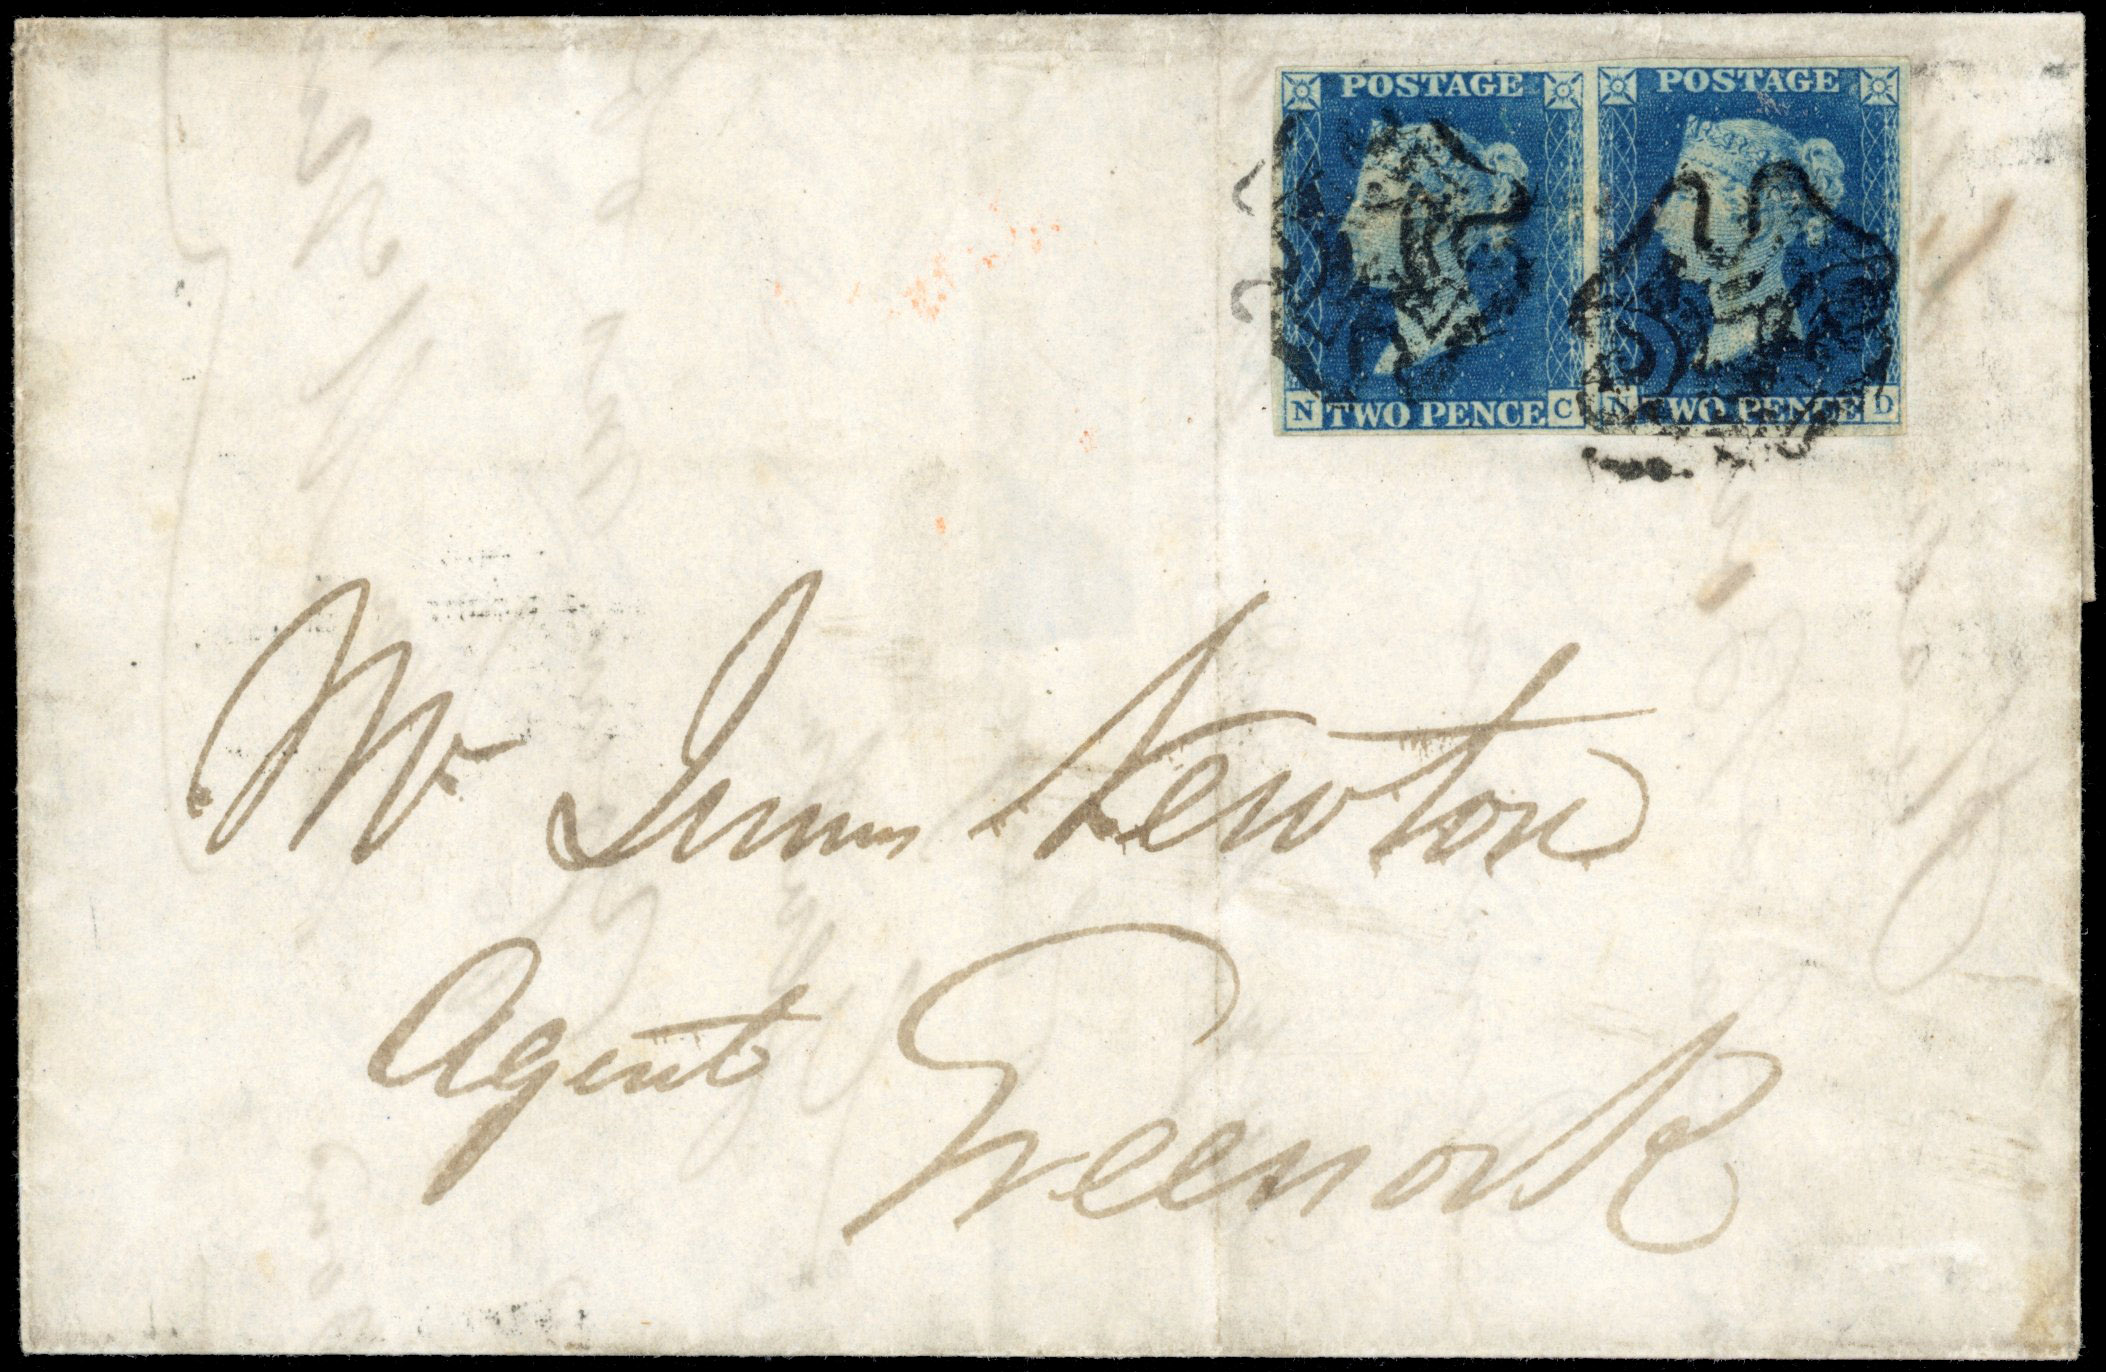 POSTAGE POSTAGE
N TWO PENCE C N TWO PENCE D
Mr Newton
Agent Greenock